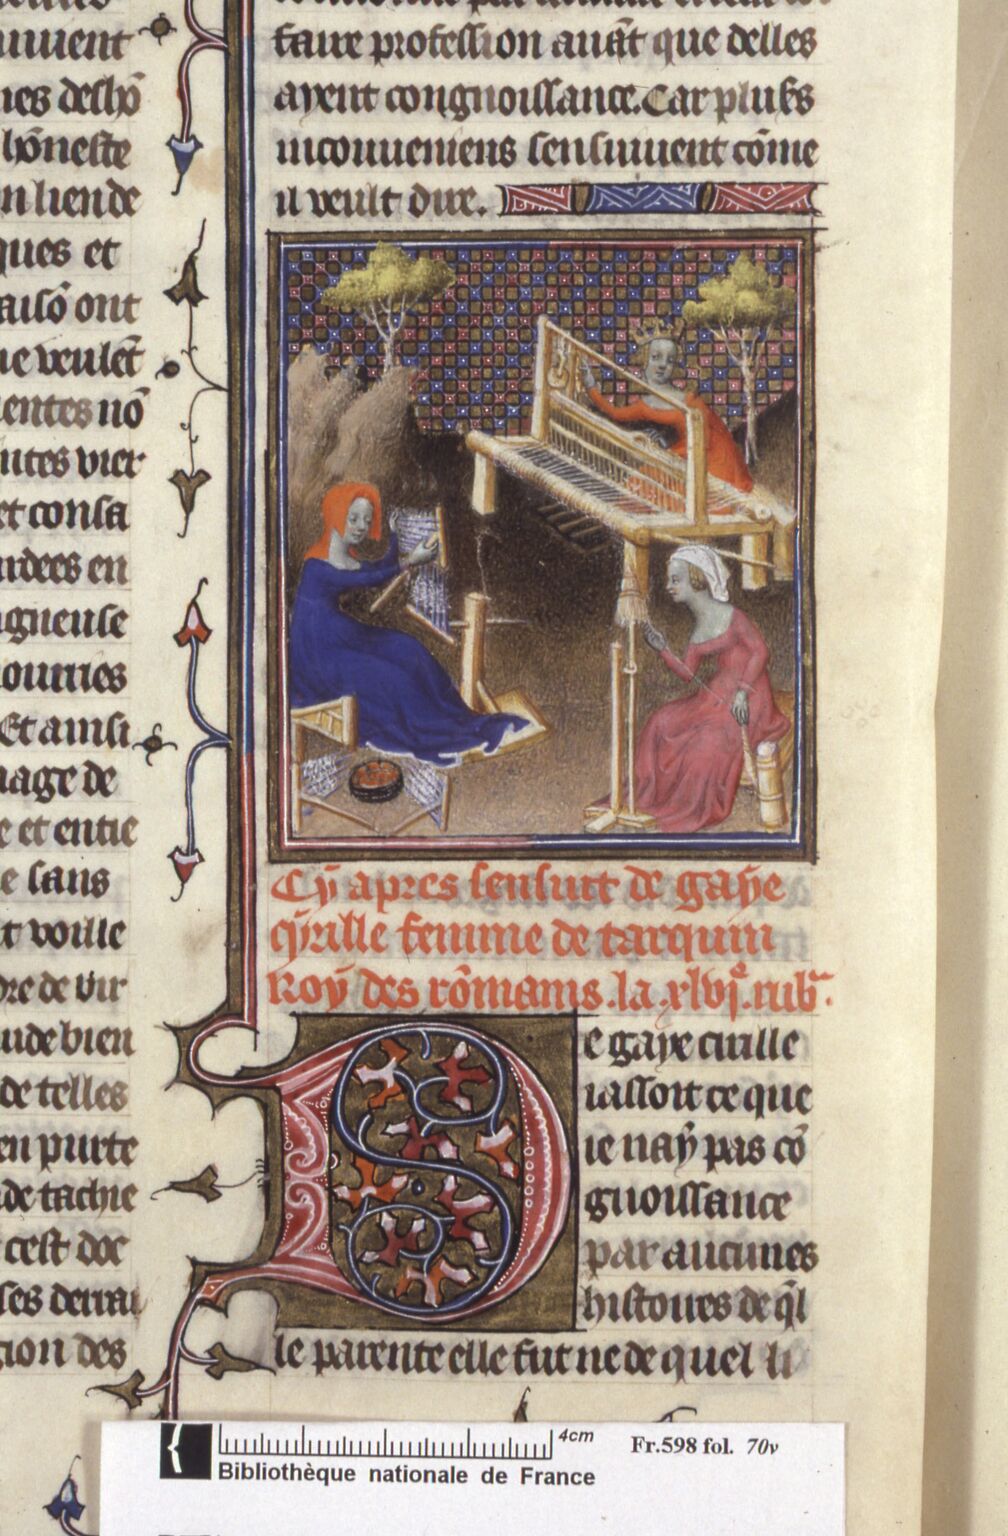 muent
nes desho
honneste
n liende
ques et
aisō ont
ue veulēt
entes nō
utes vier
et consa
ardees en
gneuse
nourries
Et ainsi
nage de
e et entie
e sans
t voille
dre de vir
ude bien
de telles
en purte
de tache
cest doc
ses derrai
gion des
faire profession auāt que delles
ayent congnoissance. Car plusrs
inconueniens sensuiuent cōme
il veult dire.
Cy apres sensuit de gaye
cyrille femme de tarquin
Roy des rōmains .la .xlvi. rubr̄.
De gaye cirille
iassoit ce que
ie nay pas cō
gnoissance
par aucunes
histoires de ql
le parente elle fut ne de quel li
4cm
Fr.598 fol. 70v
Bibliothèque nationale de France